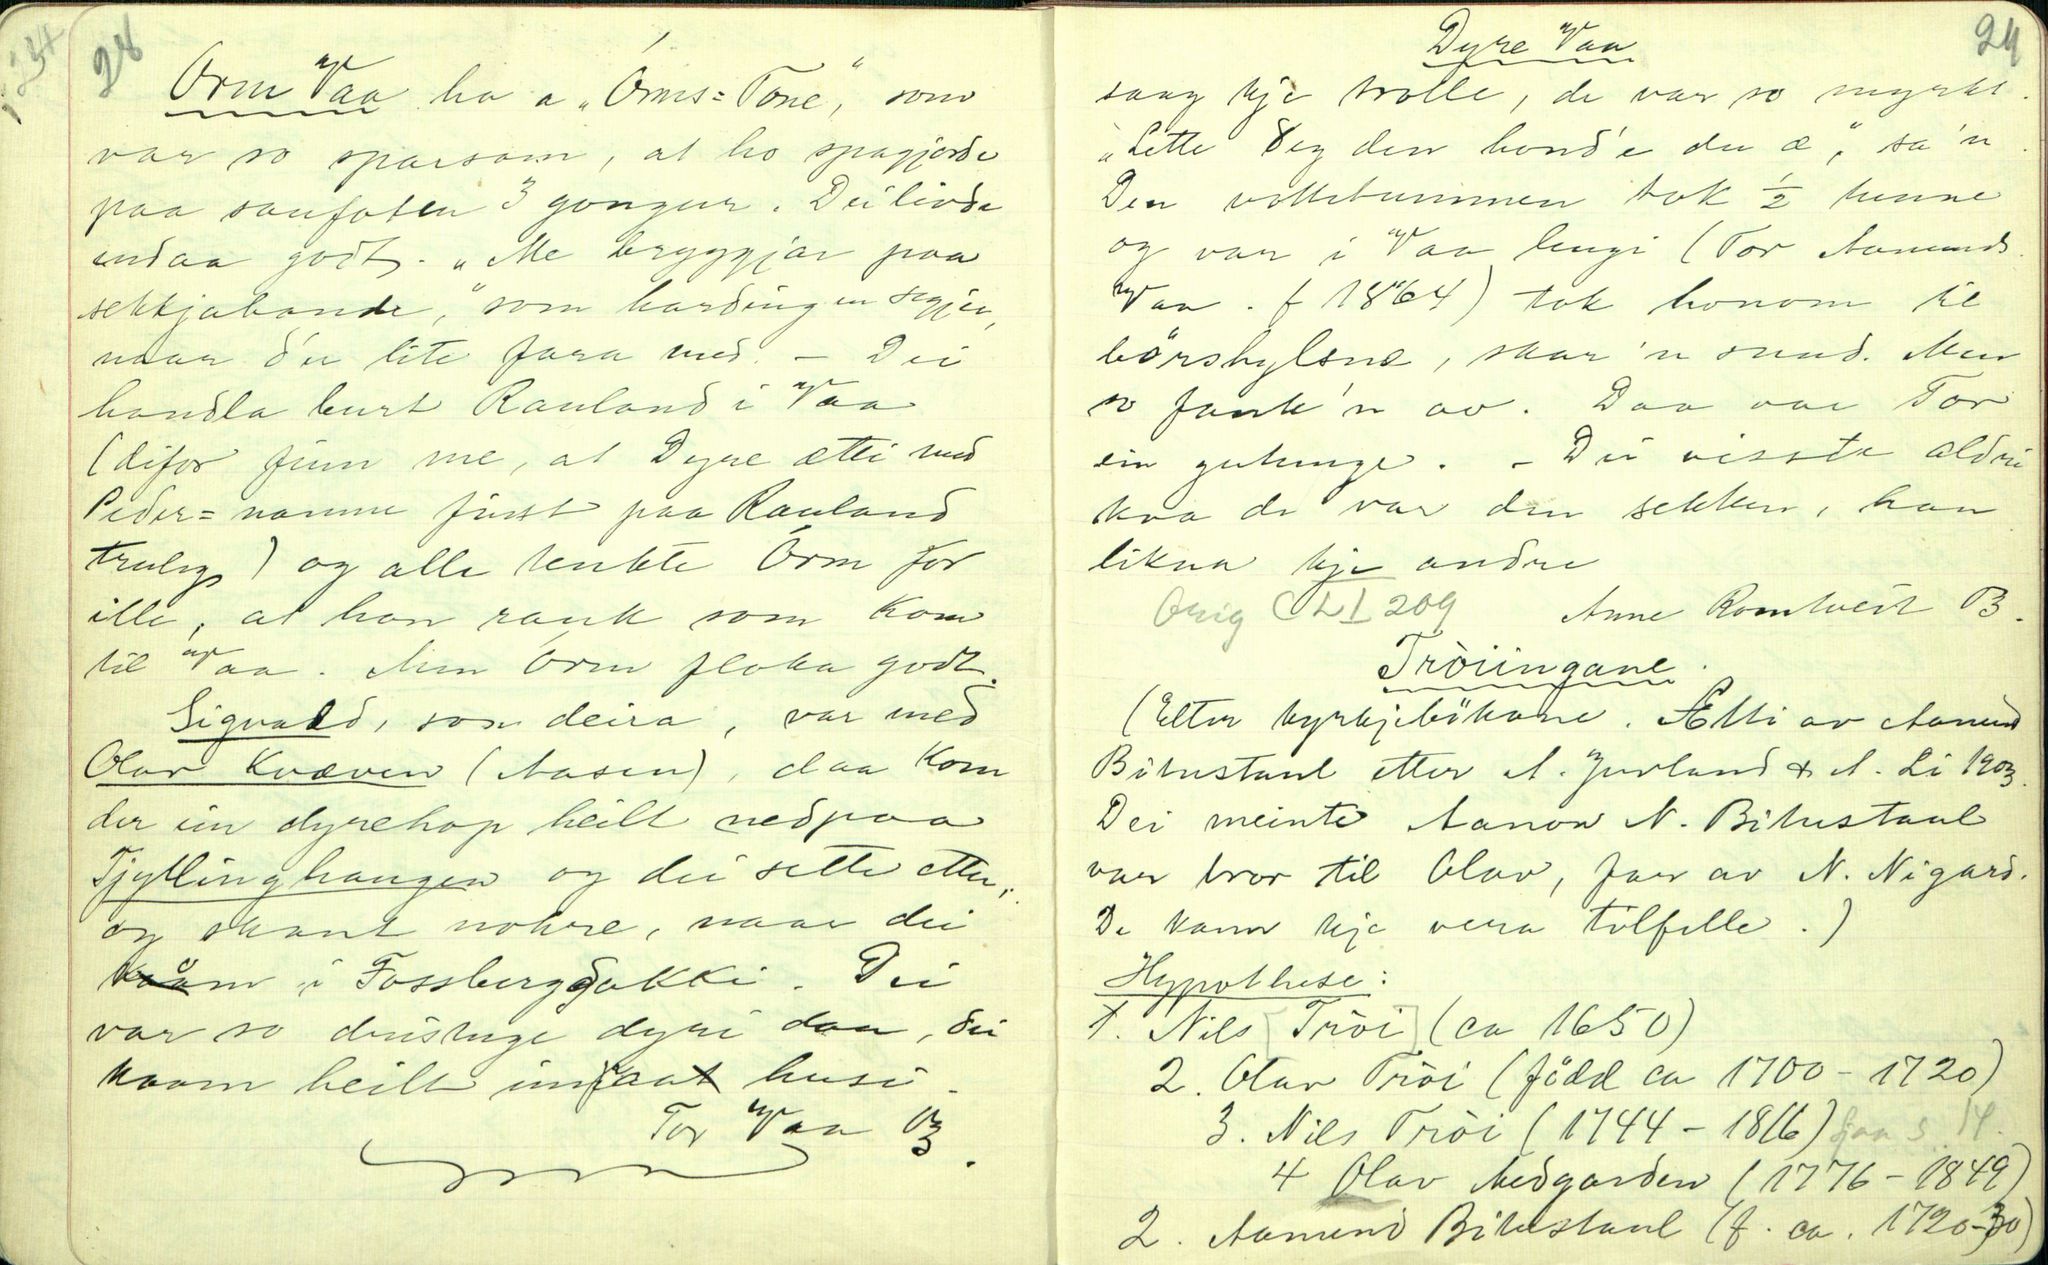 28
Orm Vaa ha a „Orms=Tone", som
var so sparsom, at ho spagjorde
paa saufoten 3 gongur. Dei livde
endaa godt. „Me bryggjar paa
sekkjabande," som hardingen segjer,
naar d'er lite fara med. – Dei
handla burt Rauland i Vaa
(difor finn me, at Dyre ætti med
Peder=namne finst paa Rauland
trulig) og alle tenkte Orm for
ille, at han rauk som kom
til Vaa. Men Orm floka godt.
Sigvald, son deira, var med
Olav Kvæven (Aasen), daa kom
der ein dyrehop heilt nedpaa
Tjyllinghaugen og dei sette etter,
og skaut nokre, naar dei
kom i Fossbergdokki. Dei
var so drustuge dyri daa, dei
kaam heilt innaat husi.
Tor Vaa B.
24
Dyre Vaa
saag kje trolle, de var so myrkt.
„Lette deg den hond'e du æ," sa'n.
Den vottetummen tok ½ tunne
og var i Vaa lengi (Tor Aamunds.
Vaa. f 1864) tok honom til
börshylsne, skar'n sund. Men
so fauk'n av. Daa var Tor
ein gutunge. – Dei visste aldri
kva de var den sekken, han
likna kje andre
Orig CLI 209 Anne Romtveit B.
Tröiingane.
(Etter kyrkjebökane. Ætti av Aamund
Bitustaul etter A. Jurland & A. Li 1903.
Dei meinte Aanon N. Bitustaul
var bror til Olav, far av N. Nigard.
De kann kje vera tilfelle.)
Hypothese:
1. Nils [Tröi] (ca 1650)
2. Olav Tröi (född ca 1700 – 1720)
3. Nils Tröi (1744 – 1816) sjaa s. 14.
4 Olav Nedgarden (1776 – 1849)
2. Aamund Bitustaul (f. ca. 1720-30)